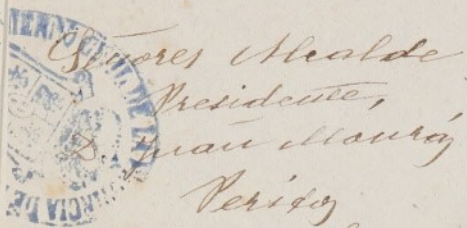 Señores Alcalde
Presidente,
D. Juan Mourá
Perito